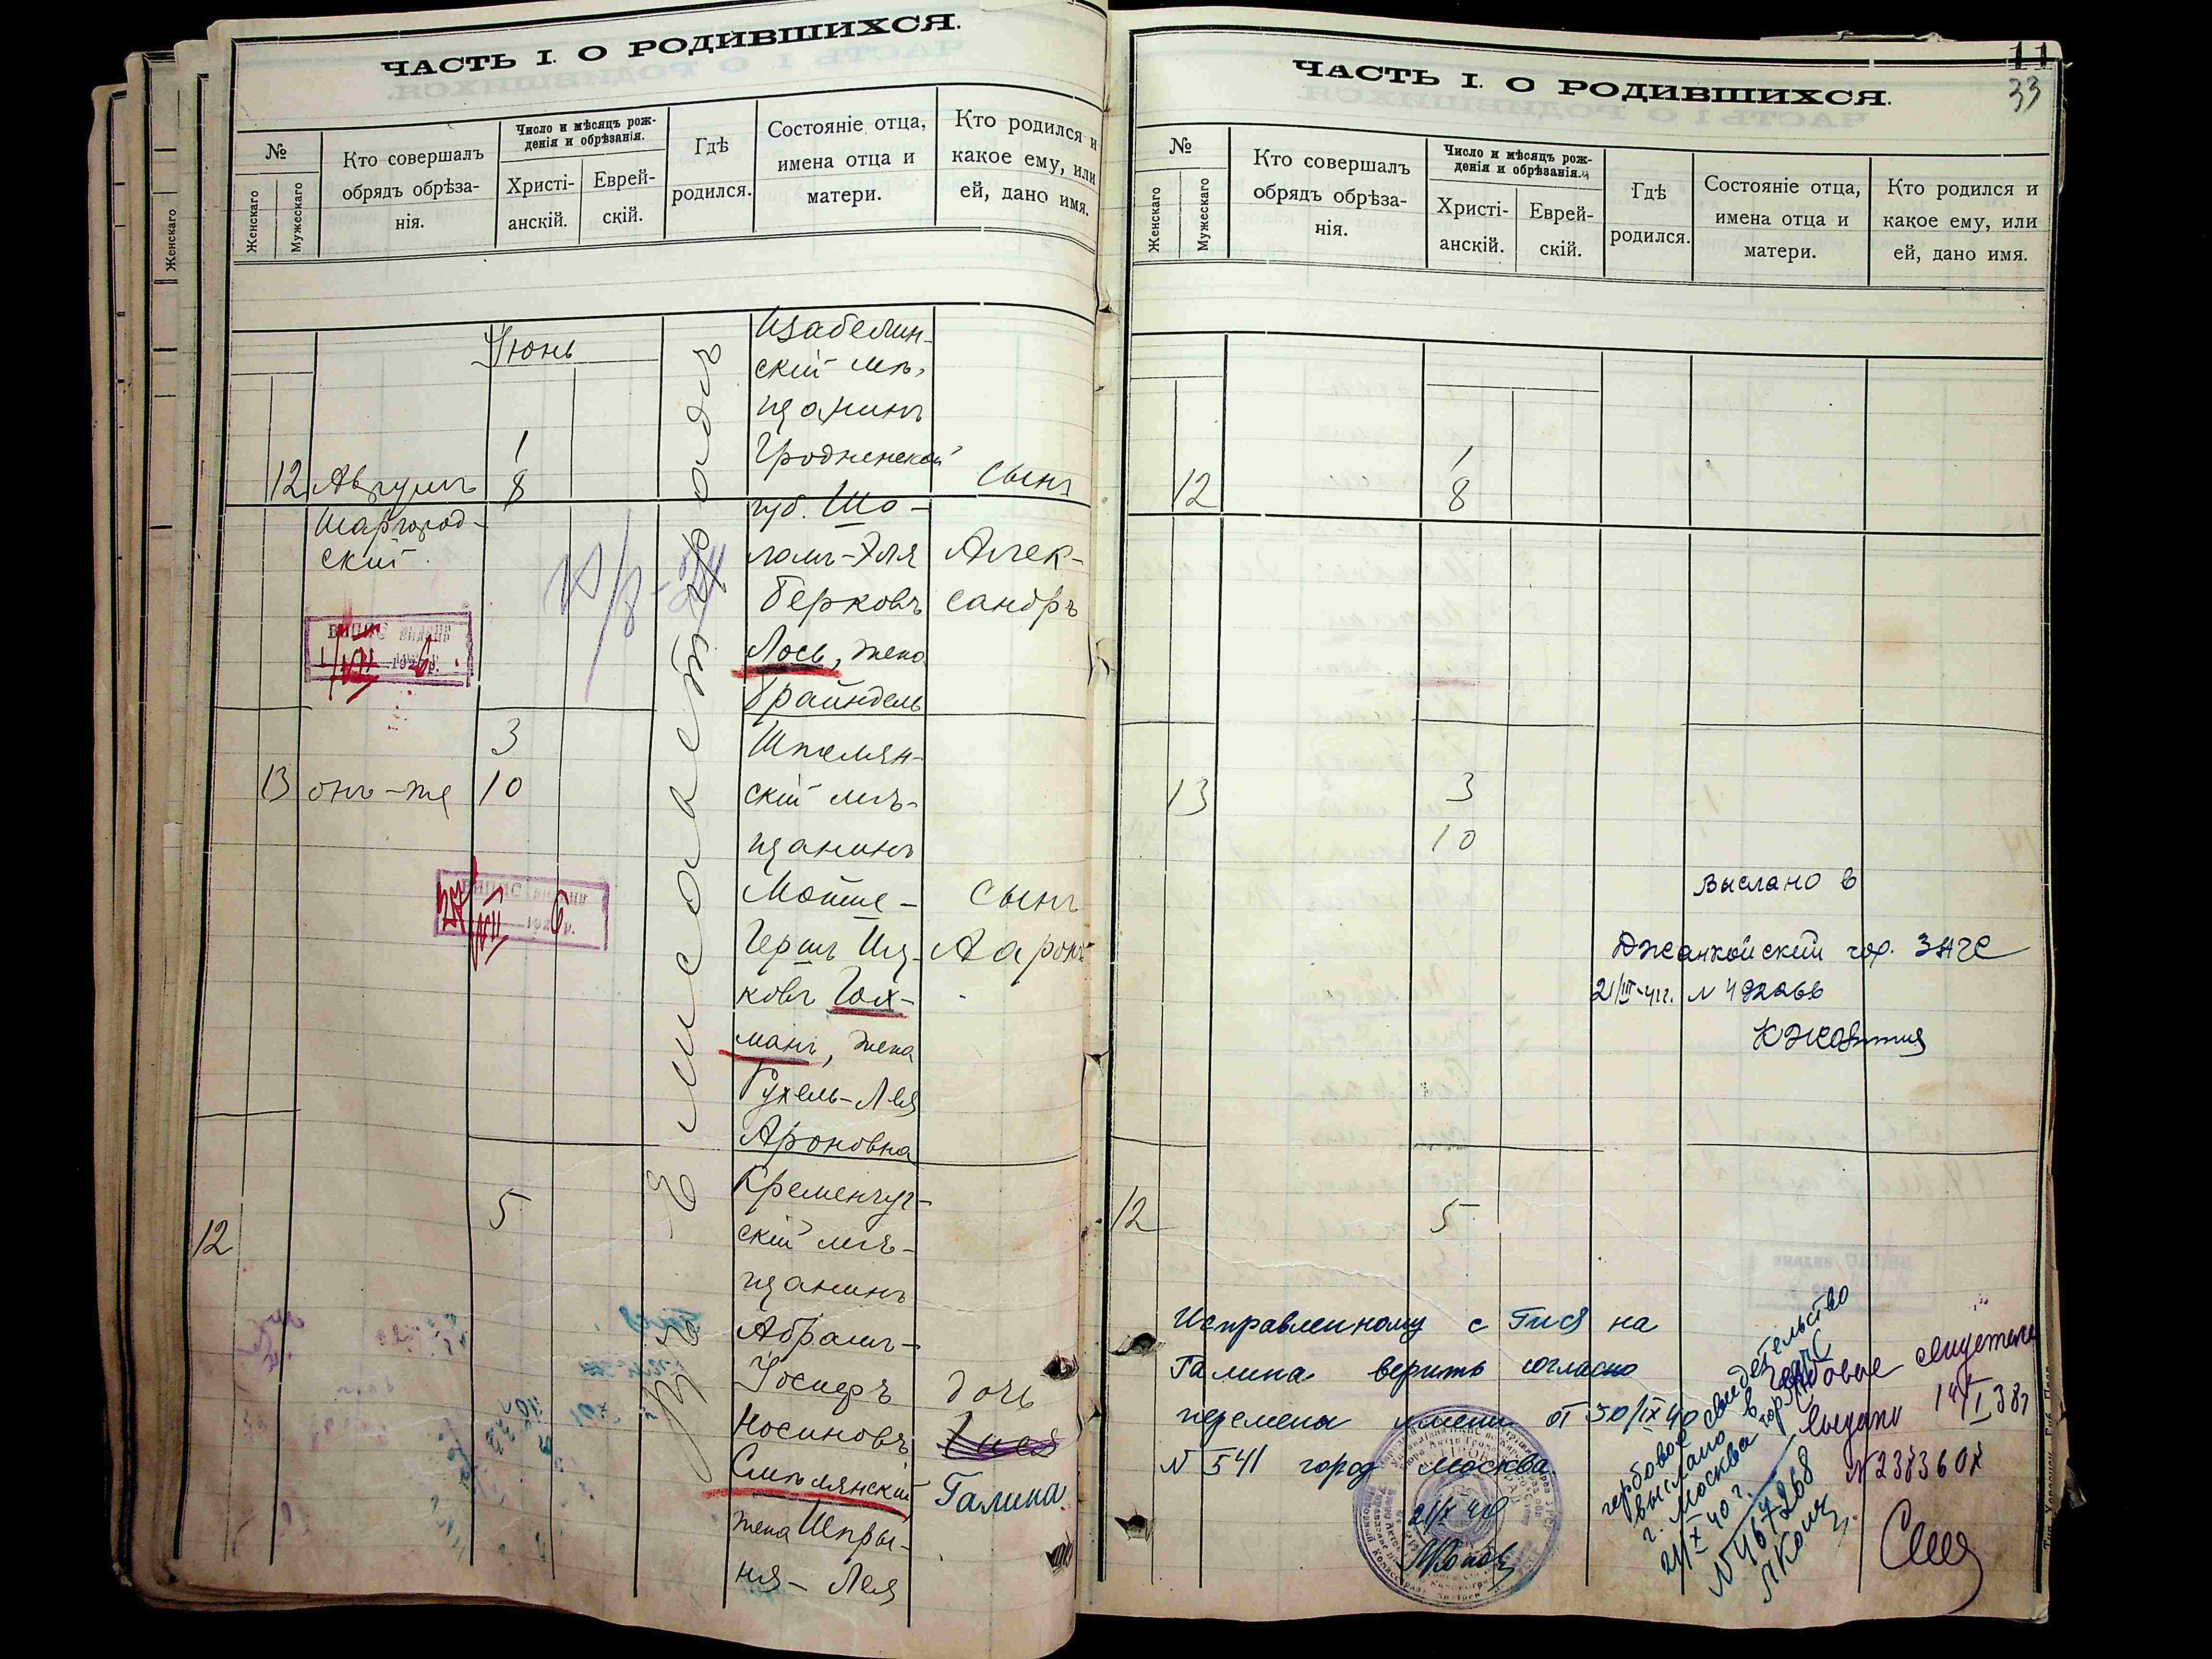 ЧАСТЬ I. О РОДИВШИХСЯ.
№
Женскаго
Мужескаго
Кто совершалъ
обрядъ обрѣза-
нія.
Число и мѣсяцъ рож-
денія и обрѣзанія.
Христі-
анскій.
Еврей-
скій.
Гдѣ
родился.
Состояніе отца,
имена отца и
матери.
Кто родился и
какое ему, или
ей, дано имя.
Женскаго
Іюнь
Въ Елисаветградѣ
12
Шаргород-
скій
1
8
Изабелин-
скій мѣ-
щанинъ
Гродненской
губ. Шо-
ломъ-Эля
Берковъ
Лось, жена
Брайндель
сынъ
Алек-
сандръ
13
онъ-же
3
10
Шполян-
скій мѣ-
щанинъ
Мошке-
Гершъ Иц-
ковъ Гох-
манъ, жена
Рухель-Лея
Ароновна
сынъ
Ааронъ
12
5
Кременчуг-
скій мѣ-
щанинъ
Абрамъ-
Іосифъ
Носиновъ
Смѣлянскій
жена Шпры-
ня-Лея
дочь
Галина
ЧАСТЬ I. О РОДИВШИХСЯ.
11
33
№
Женскаго
Мужескаго
Кто совершалъ
обрядъ обрѣза-
нія.
Число и мѣсяцъ рож-
денія и обрѣзанія.
Христі-
анскій.
Еврей-
скій.
Гдѣ
родился.
Состояніе отца,
имена отца и
матери.
Кто родился и
какое ему, или
ей, дано имя.
12
1
8
13
3
10
Выслано в
Джанкойский гор. ЗАГС
21/III-41г. N 492266
12
5
Исправленному с Гися на
Галина верить согласно
перемены имени от 30/IX 40
N 541 город Москва
21/X 40
гербовое свидетельство
выслано в ЗАГС
г. Москва
21/X 40 г.
N 467268
Гербовое
выдано 14/I 38
N 238360